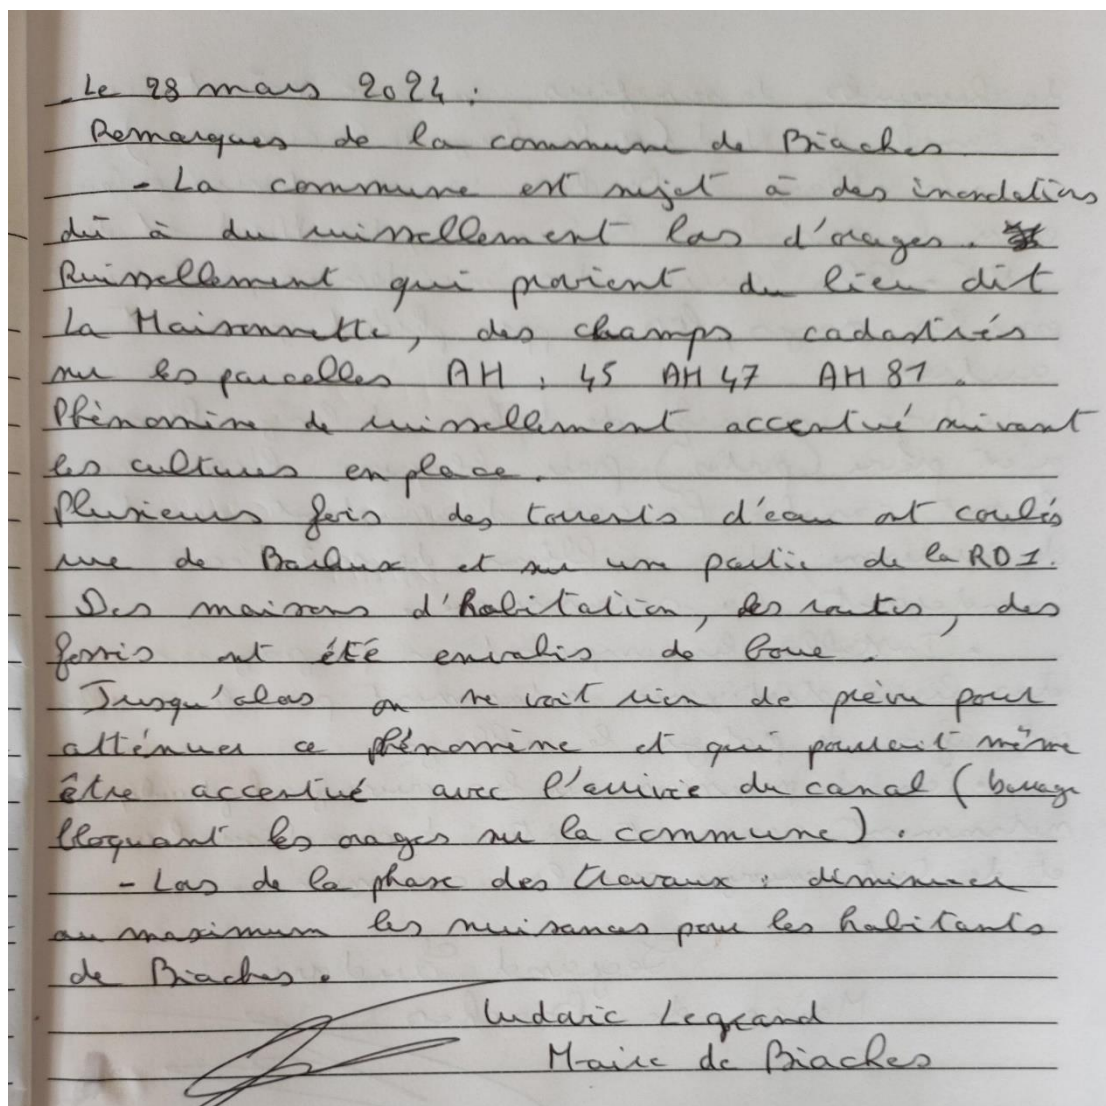 Le 28 mars 2024 :
Remarques de la commune de Biaches
- La commune est sujet à des inondations
dû à du ruissellement lors d'orages.
Ruissellement qui provient du lieu dit
La Maisonnette, des champs cadastrés
sur les parcelles AH : 45 AH 47 AH 81.
Phénomène de ruissellement accentué suivant
les cultures en place.
Plusieurs fois des torrents d'eau ont coulés
rue de Barleux et sur une partie de la RD1.
Des maisons d'habitation, des routes, des
fossés ont été envahis de boue.
Jusqu'alors on ne voit rien de prévu pour
atténuer ce phénomène et qui pourrait même
être accentué avec l'arrivée du canal (barrage
bloquant les orages sur la commune).
- Lors de la phase des travaux : diminuer
au maximum les nuisances pour les habitants
de Biaches.
Ludovic Legrand
Maire de Biaches